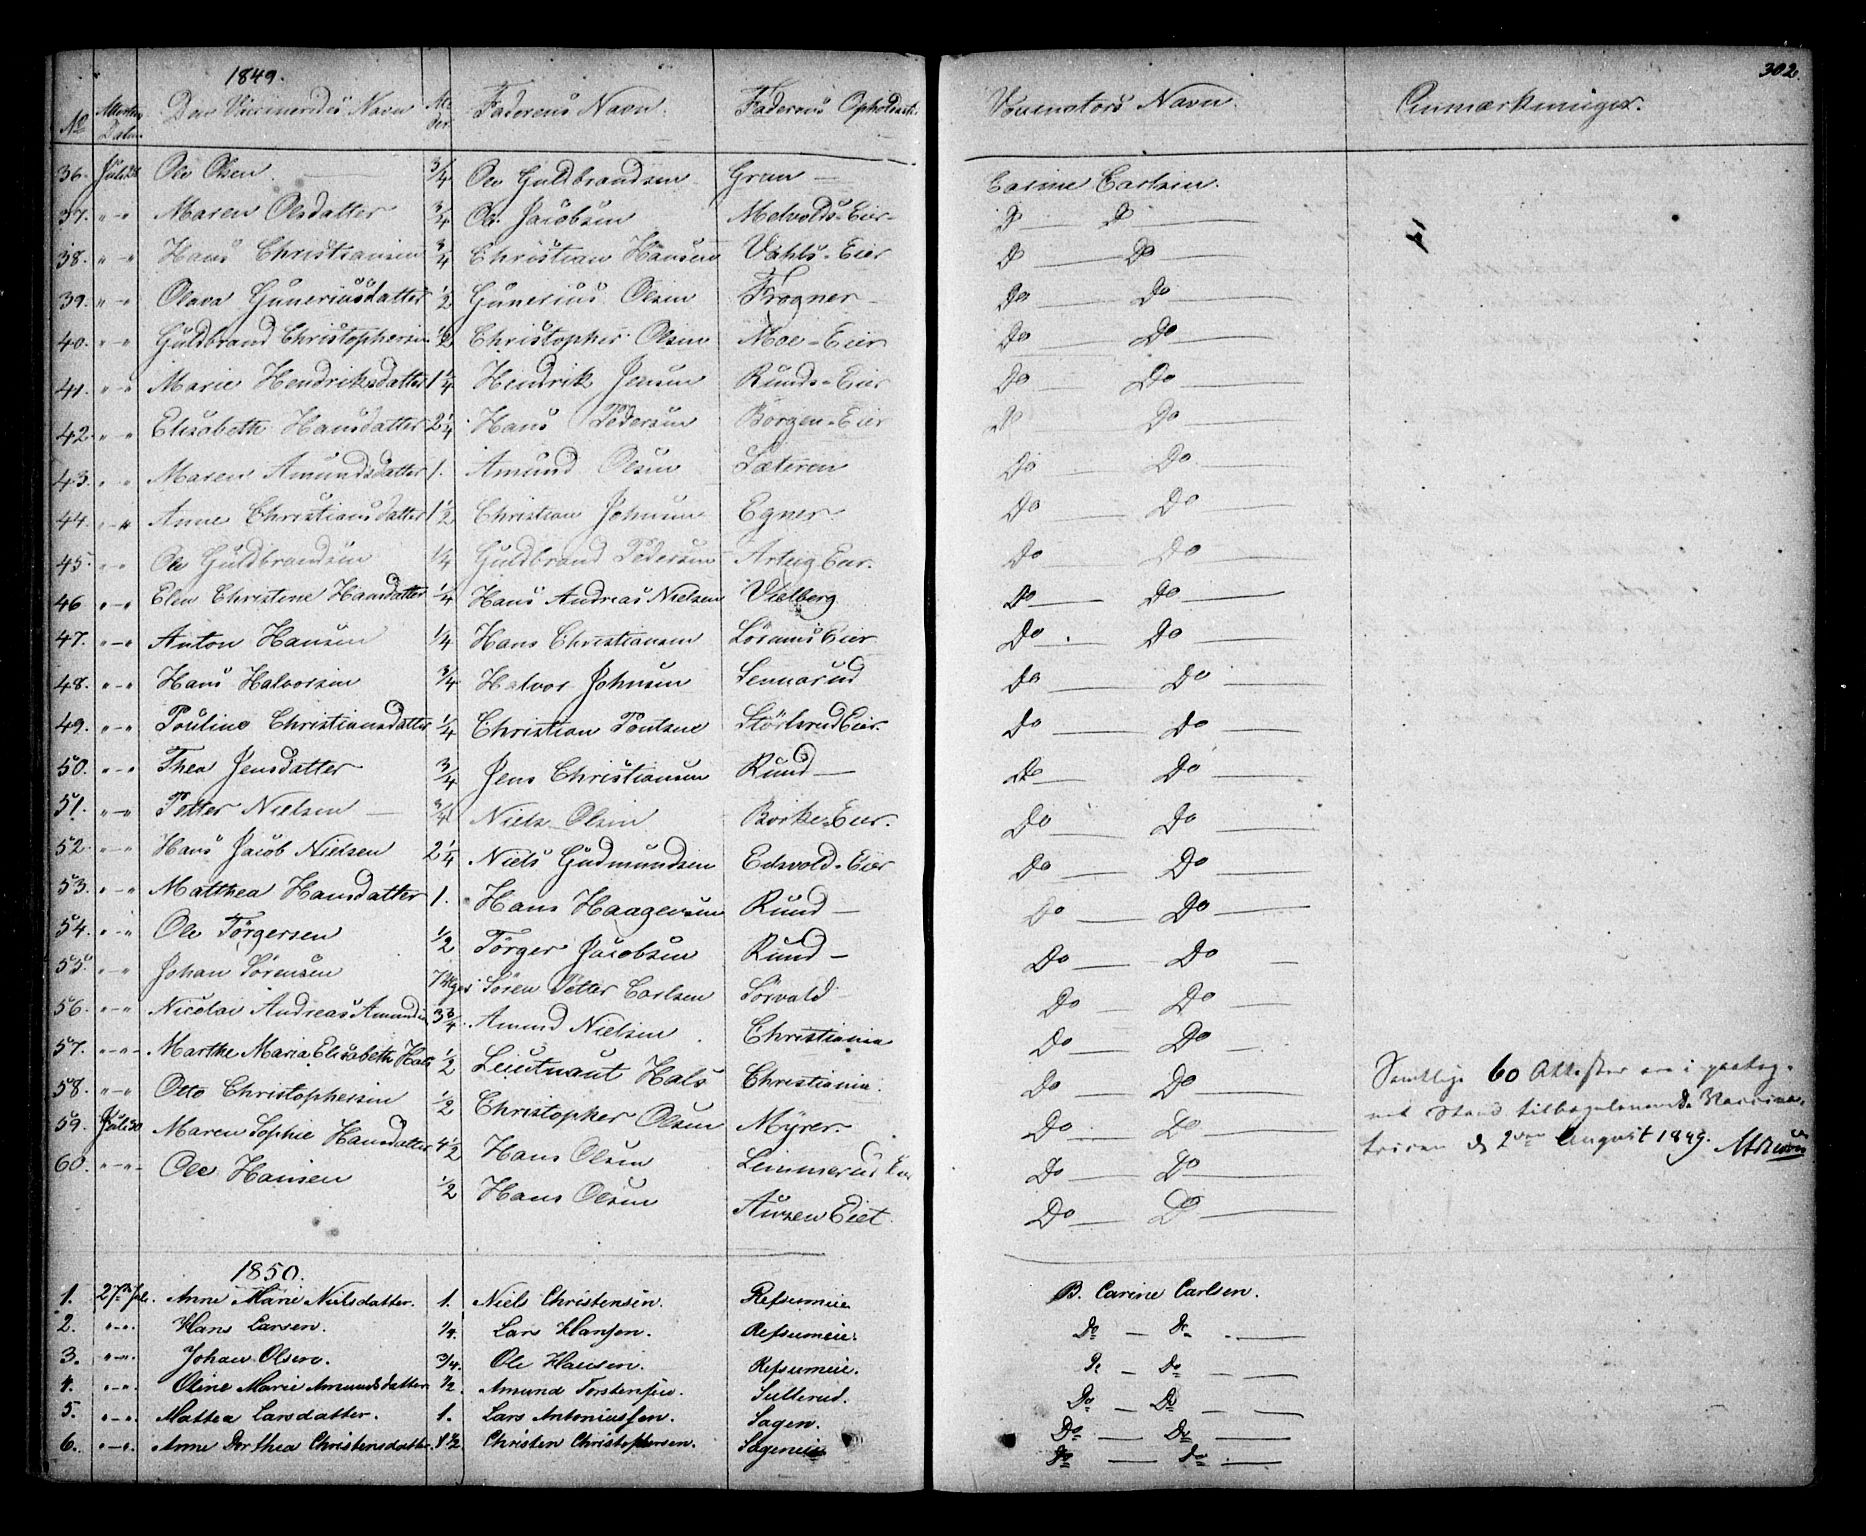 1849.
302
No Attestens Datum Den Vaccineredes Navn Alder Faderens Navn Faderens Opholdsst. Vaccinators Navn. Anmærkninger.
36. Juli Ole Olsen. 3/4 Ole Guldbrandsen Gran — Carine Carlsen.
37. "—" Maren Olsdatter 3/4 Ole Jacobsen Melvolds-Eier Do — Do —
38. "—" Hans Christiansen 3/4 Christian Hansen Vahls-Eier Do — Do —
39. "—" Olava Guneriusdatter 1/2 Gunerius Olsen Frogner — Do — Do —
40. "—" Guldbrand Christophersen 1/2 Christopher Olsen Moe-Eier Do — Do —
41. "—" Marie Hendriksdatter 1 1/4 Hendrik Jensen Runds-Eier Do — Do —
42. "—" Elisabeth Hansdatter 2 1/4 Hans Pedersen Borgen-Eier Do — Do —
43. "—" Maren Amundsdatter 1. Amund Olsen Sæteren Do — Do —
44. "—" Anne Christiansdatter 1 1/2 Christian Johnsen Egner. Do — Do —
45. "—" Ole Guldbrandsen 1/4 Guldbrand Pedersen Arteig Eier. Do — Do —
46 "—" Elen Christene Hansdatter 1/4 Hans Andreas Nielsen Vielberg Do — Do —
47. "—" Anton Hansen 1/4 Hans Christiansen Eier Do — Do —
48. "—" Hans Halvorsen 3/4 Halvor Johnsen Sennarud Do — Do —
49. "—" Pouline Christiansdatter 1/4 Christian Poulsen Störlsrud Eier. Do — Do —
50. "—" Thea Jensdatter 3/4 Jens Christiansen Rund — Do — Do —
51. "—" Petter Nielsen — 3/4 Niels Olsen Borke-Eier. Do — Do —
52. "—" Hans Jacob Nielsen 2 1/4 Niels Gudmundsen Edsvold-Eier Do — Do —
53. "—" Matthea Hansdatter 1. Hans Haagensen Rund — Do — Do —
54. "—" Ole Törgersen 1/2 Törger Jacobsen Rund — Do — Do —
55. "—" Johan Sörensen 7 Uger Sören Petter Carlsen Sörvald Do — Do —
56. "—" Nicolai Andreas Amundsen 3 3/4 Amund Nielsen. Christiania Do — Do —
57. "—" Marthe Maria Elisabeth Hals 1/2 Leutnant Hals Christiania. Do — Do —
58. "—" Otto Christophersen 1/2 Christopher Olsen Myrer Do — Do —
59. Juli 30 Maren Sophie Hansdatter 4 1/2 Hans Olsen Limmerud Do — Do —
60. "—" Ole Hansen 1/2 Hans Olsen Aursen Eiet. Do — Do —
Samtlige 60 Attester ere i
Stand
2den August 1849.
1850.
1. 27de Juli. Anne Marie Nielsdatter. 1. Niels Christensen. Refsumeie B. Carine Carlsen.
2. "—". Hans Larsen. 1/4. Lars Hansen. Refsumeie. Do — Do —
3. "—". Johan Olsen. 3/4. Ole Hansen. Refsumeie. Do — Do —
4. "—". Oline Marie Amundsdatter 1/2. Amund Torstensen. Sulterud. Do — Do —
5. "—". Mattea Larsdatter. 1. Lars Antoniussen. Sagen. Do — Do —
6. "—". Anne Dorthea Christensdatter. 1/2. Christen Christophersen. Sageneie Do — Do —